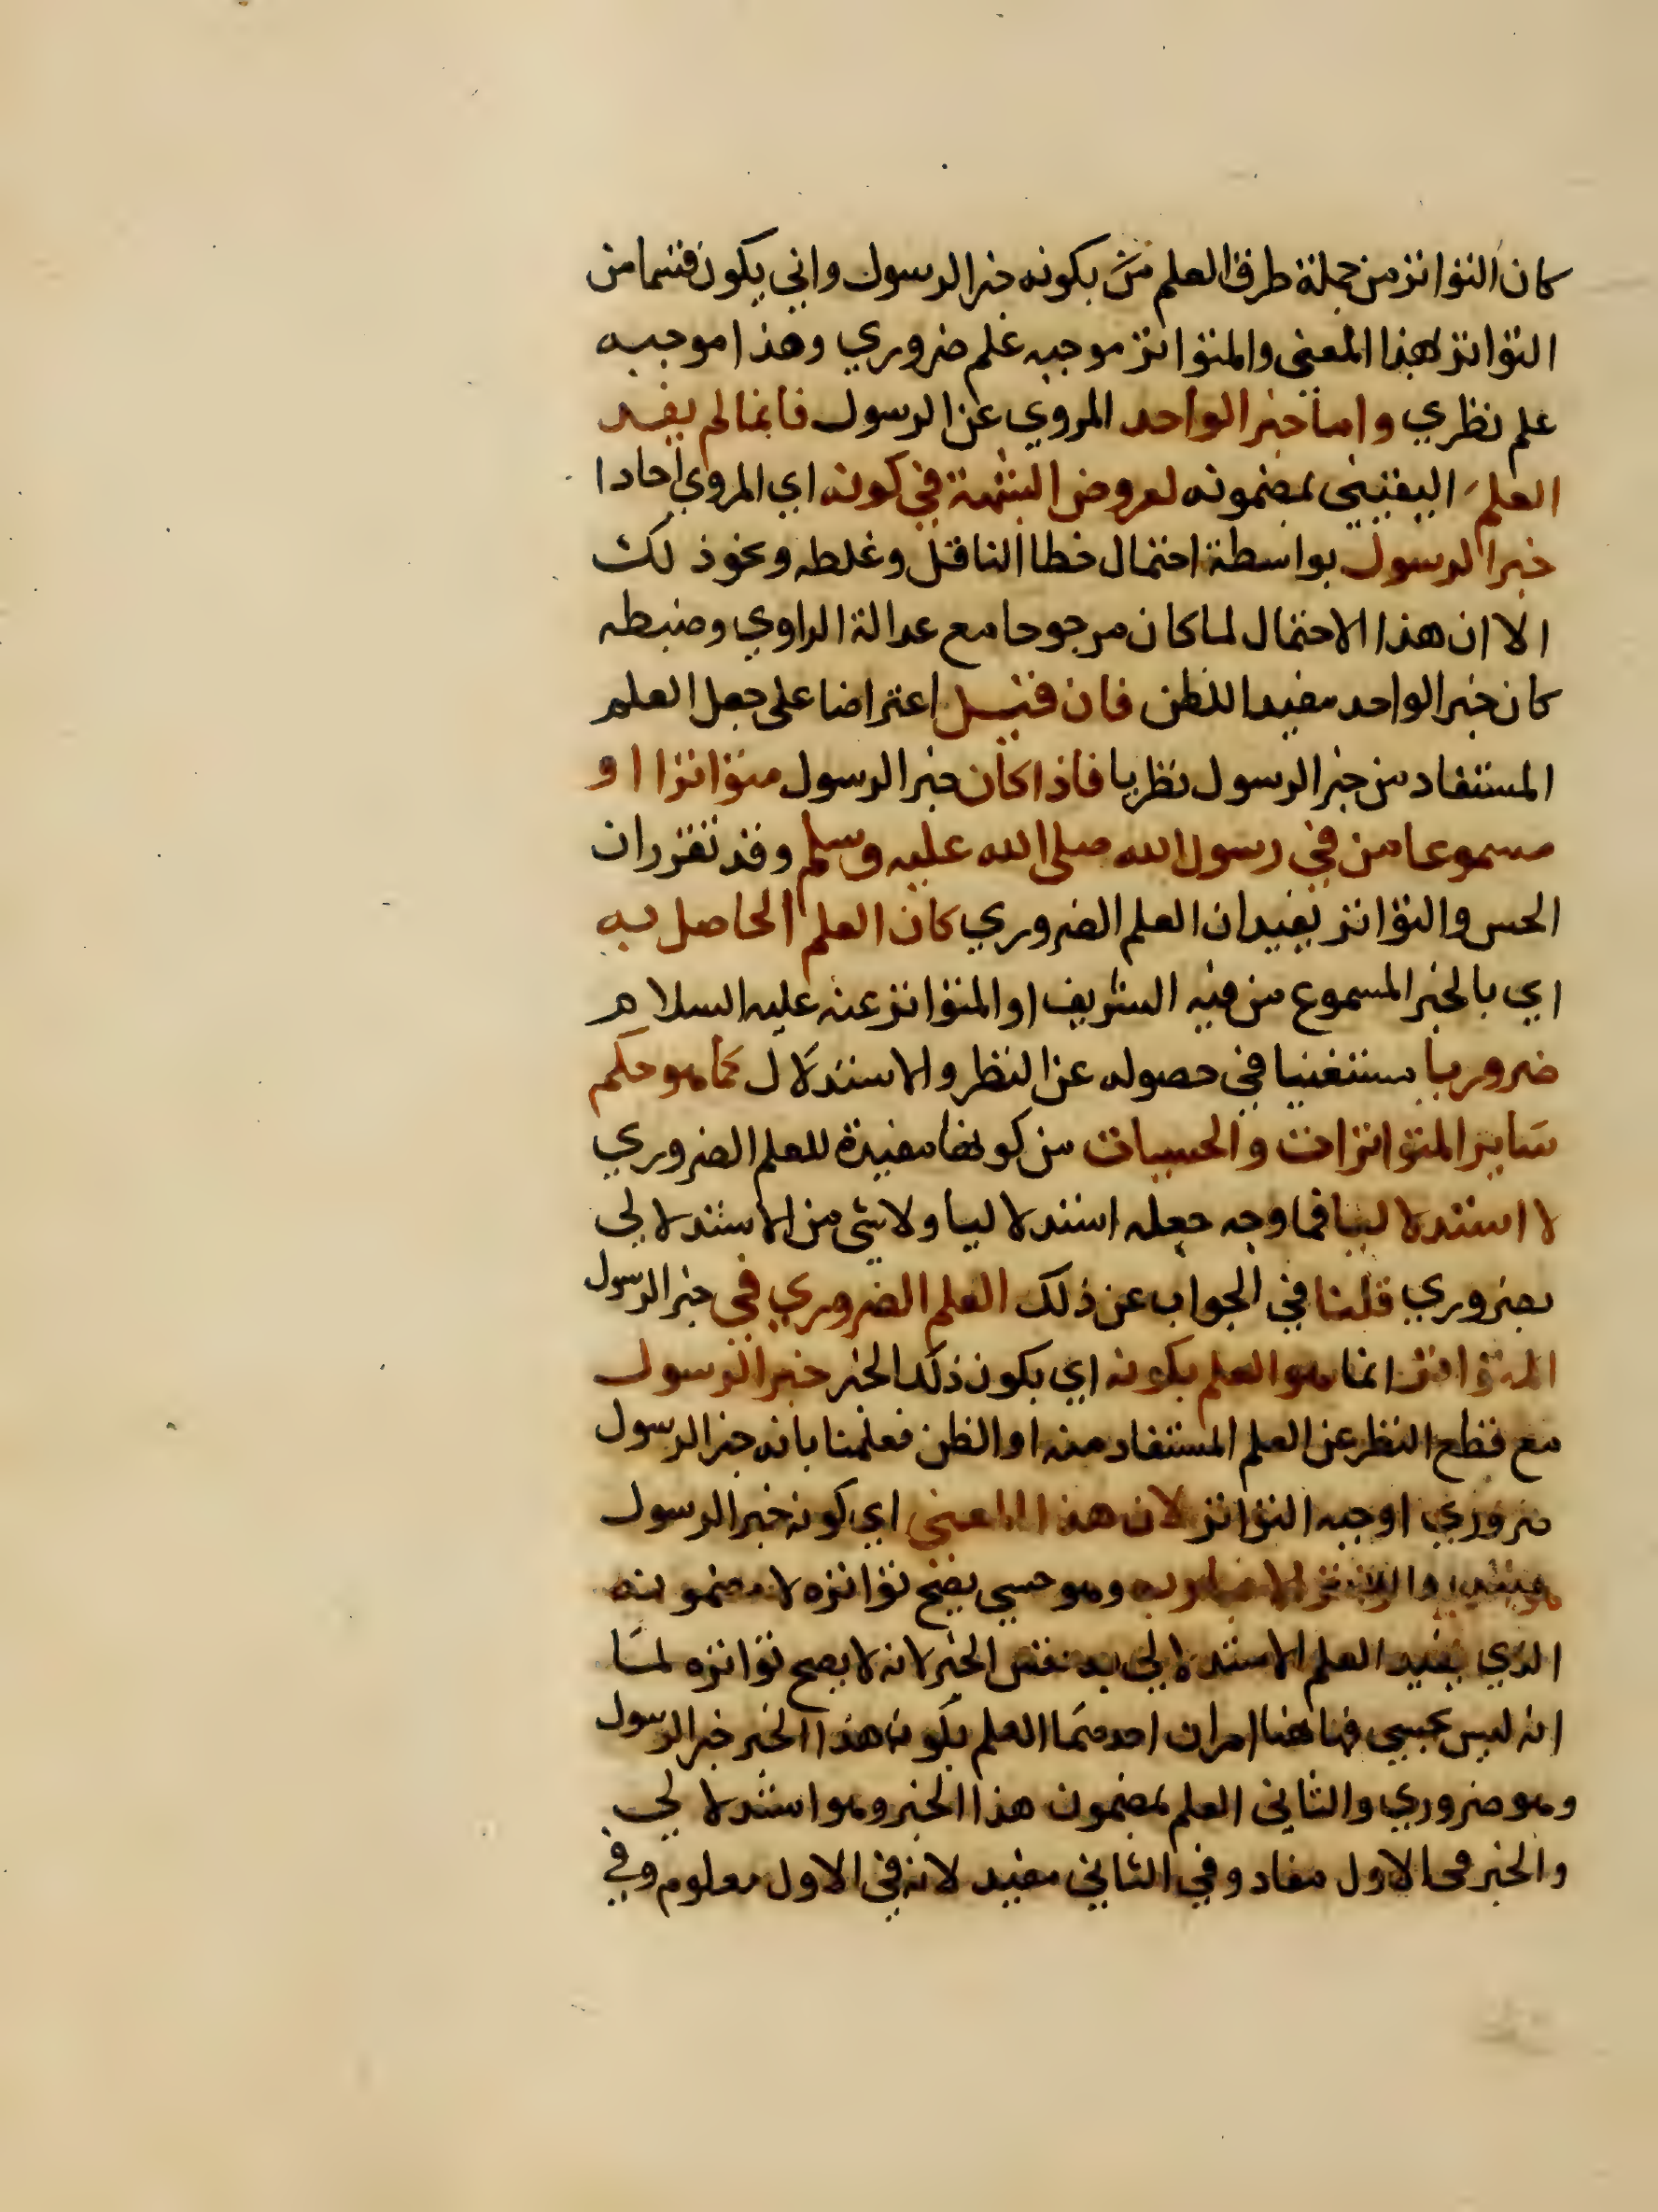 كان التواتر من جملة طرق العلم بكونه خبر الرسول واني يكون قسما من
التواتر لهذا المعنى والمتواتر موجبه علم ضروري وهذا موجبه
علم نظري واما خبر الواحد المروي عن الرسول فانما لم يفد
العلم اليقيني بمضمونه لعروض الشبهة في كونه اي المروي احادا
خبر الرسول بواسطة احتمال خطا الناقل وغلطه ونحو ذلك
الا ان هذا الاحتمال لما كان مرجوحا مع عدالة الراوي وضبطه
كان خبر الواحد مفيدا للظن فان قيل اعتراضا على جعل العلم
المستفاد من خبر الرسول نظريا فاذا كان خبر الرسول متواترا او
مسموعا من في رسول الله صلى الله عليه وسلم وقد تقرر ان
الحس والتواتر يفيدان العلم الضروري كان العلم الحاصل به
اي بالخبر المسموع من فيه الشريف او المتواتر عنه عليه السلام
ضروريا مستغنيا في حصوله عن النظر والاستدلال كما هو حكم
ساير المتواترات والحسيات من كونها مفيدة للعلم الضروري
لا استدلاليا فما وجه جعله استدلاليا ولا شي من الاستدلالي
بضروري قلنا في الجواب عن ذلك العلم الضروري في خبر الرسول
المتواتر انما هو العلم بكونه اي بكون ذلك الخبر خبر الرسول
مع قطع النظر عن العلم المستفاد منه او الظن فعلمنا بانه خبر الرسول
ضروري اوجبه التواتر لان هذا المعنى اي كونه خبر الرسول
هو الذي تواتر الاخبار به وهو حسي يصح تواتره لا مضمونه
الذي يفيد العلم الاستدلالي به نفس الخبر لانه لا يصح تواتره لما
انه ليس بحسي فهاهنا امران احدهما العلم بكون هذا الخبر خبر الرسول
وهو ضروري والثاني العلم بمضمون هذا الخبر وهو استدلالي
والخبر في الاول مفاد وفي الثاني مفيد لانه في الاول معلوم وفي